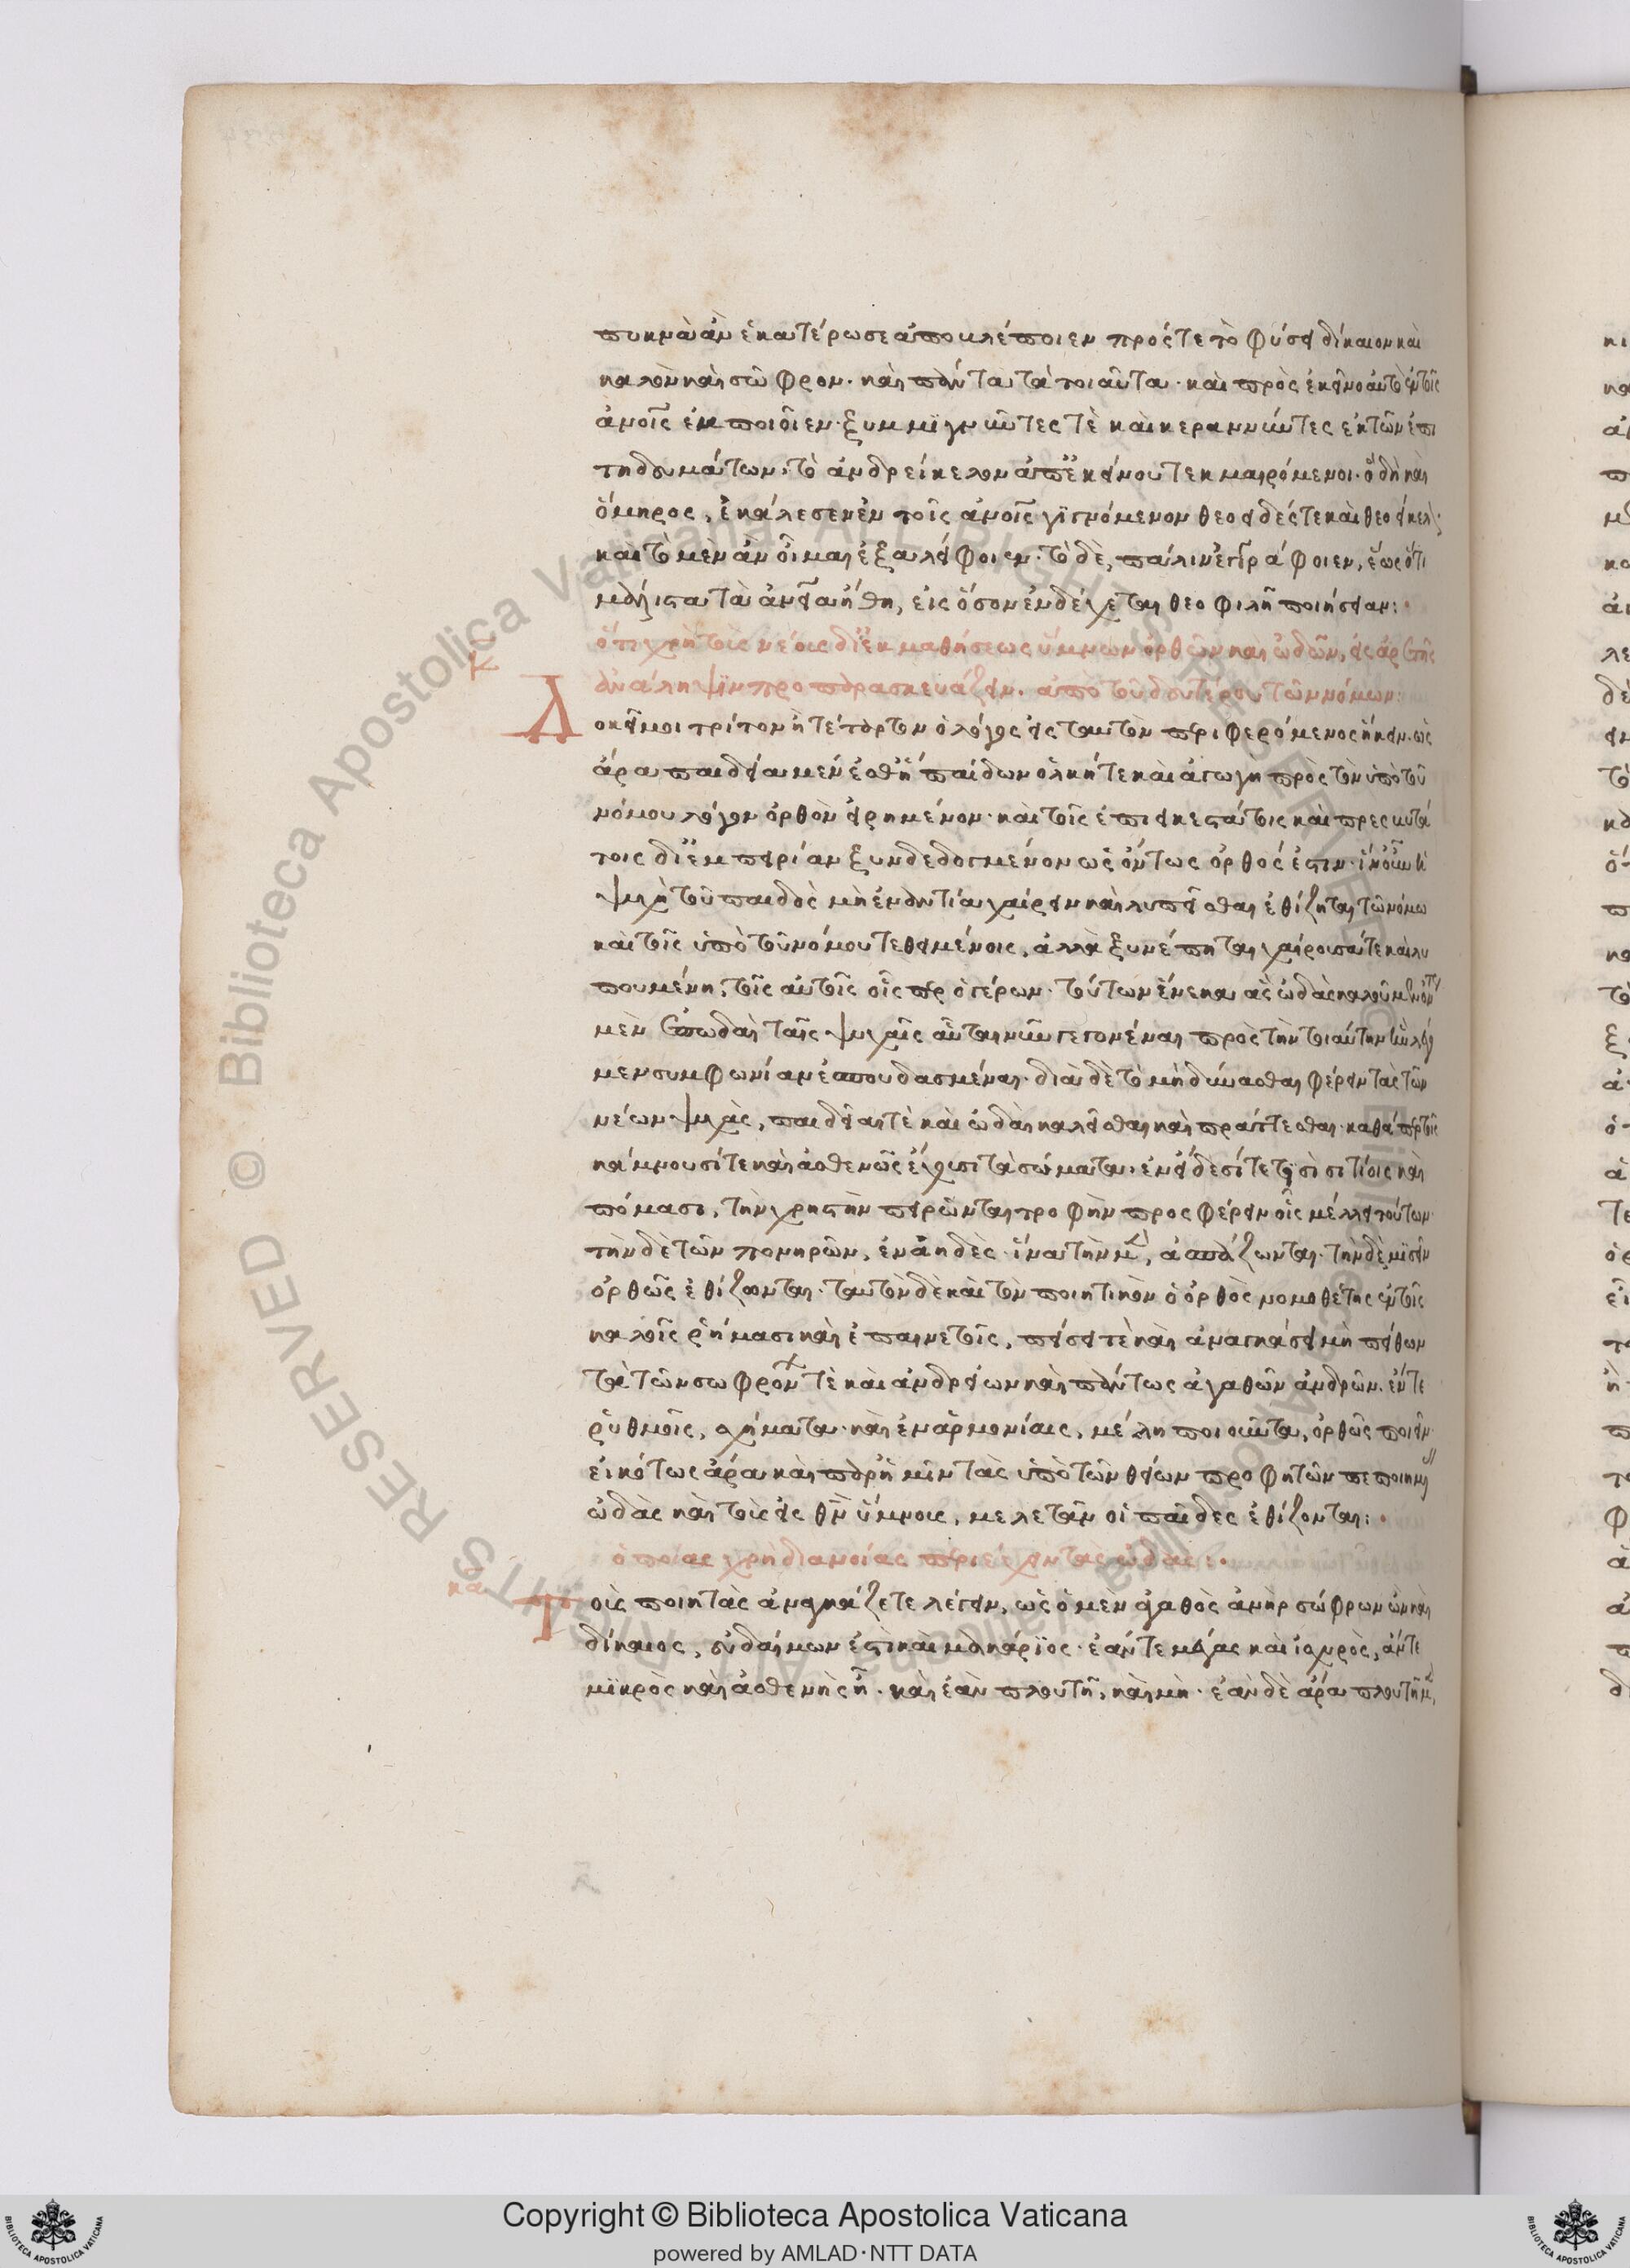 πυκνὰ ἂν ἑκατέρωσε ἀποβλέποιεν πρός τε τὸ φύσει δίκαιον καὶ
καλὸν καὶ σῶφρον· καὶ πάντα τὰ τοιαῦτα· καὶ πρὸς ἐκεῖνο αὖ τὸ ἐν τοῖς
ἀνοις ἐμποιοῖεν· ξυμμιγνῦντες τὲ καὶ κεραννύντες ἐκ τῶν ἐπι
τηδευμάτων, τὸ ἀνδρείκελον ἀπ' ἐκείνου τεκμαιρόμενοι· ὃ δὴ καὶ
ὅμηρος, ἐκάλεσεν ἐν τοῖς ἀνοις γιγνόμενον θεοειδές τε καὶ θεοείκελ
καὶ τὸ μὲν ἂν οἶμαι ἐξαλείφοιεν· τὸ δὲ, πάλιν ἐγγράφοιεν, ἕως ὅτι
μάλιστα τὰ ἀνεια ἤθη, εἰς ὅσον ἐνδέχεται θεοφιλῆ ποιήσειαν:
ὅτι χρὴ τοὺς νέους δι' ἐκμαθήσεως ὕμνων ὀρθῶν καὶ ὠδῶν, εἰς ἀρετῆς
ἀνάληψιν προπαρασκευάζειν. ἀπὸ τοῦ δευτέρου τῶν νόμων:
κ
Δοκεῖ μοι τρίτον ἢ τέταρτον ὁ λόγος εἰς ταυτὸν περιφερόμενος ἥκειν. ὡς
ἄρα παιδεία μέν ἐσθ' ἡ παίδων ὁλκή τε καὶ ἀγωγὴ πρὸς τὸν ὑπὸ τοῦ
νόμου λόγον ὀρθὸν εἰρημένον· καὶ τοῖς ἐπιεικεστάτοις καὶ πρεσβυτά
τοις δι' ἐμπειρίαν ξυνδεδογμένον ὡς ὄντως ὀρθός ἐστιν· ἵν' οὖν ἡ
ψυχὴ τοῦ παιδὸς μὴ ἐναντία χαίρειν καὶ λυπεῖσθαι ἐθίζηται τῶ νόμω
καὶ τοῖς ὑπὸ τοῦ νόμου τεθειμένοις, ἀλλὰ ξυνέπηται χαίρουσά τε καὶ λυ
πουμένη, τοῖς αὐτοῖς οἷς περ ὁ γέρων· τούτων ἕνεκα ἃς ὠδὰς καλοῦμεν ὄντως
μὲν ἐπωδαὶ ταῖς ψυχαῖς αὗται νῦν γεγονέναι πρὸς τὴν τοιαύτην ἣν λέγο
μεν συμφωνίαν ἐσπουδασμέναι· διὰ δὲ τὸ μὴ δύνασθαι φέρειν τὰς τῶν
νέων ψυχὰς, παιδιαί τὲ καὶ ὠδαὶ καλεῖσθαι καὶ πράττεσθαι· καθάπερ τοῖς
κάμνουσί τε καὶ ἀσθενῶς ἔχουσι τὰ σώματα, ἐν ἡδέσί τε τισὶ σιτίοις καὶ
πόμασι, τὴν χρηστὴν πειρῶνται τροφὴν προσφέρειν οἷς μέλει τούτων·
τὴν δὲ τῶν πονηρῶν, ἐν ἀηδὲς· ἵνα τὴν μ, ἀσπάζωνται· τὴν δὲ μισεῖν
ὀρθῶς ἐθίζωνται· ταυτὸν δὲ καὶ τὸν ποιητικὸν ὁ ὀρθὸς νομοθέτης ἐν τοῖς
καλοῖς ῥήμασι καὶ ἐπαινετοῖς, πείσει τὲ καὶ ἀναγκάσει μὴ πείθων
τὰ τῶν σωφρόνων τὲ καὶ ἀνδρείων καὶ πάντως ἀγαθῶν ἀνδρῶν. ἔν τε
ῥυθμοῖς, σχήματα· καὶ ἐν ἁρμονίαις, μέλη ποιοῦντα, ὀρθῶς ποιεῖν·
εἰκότως ἄρα καὶ παρ' ἡμῖν τὰς ὑπὸ τῶν θείων προφητῶν πεποιημ
ὠδὰς καὶ τοὺς εἰς θν ὕμνους, μελετᾶν οἱ παῖδες ἐθίζονται:
ὁποίας χρὴ διανοίας περιέχειν τὰς ὠδάς:
κα
Τοὺς ποιητὰς ἀναγκάζετε λέγειν, ὡς ὁ μὲν ἀγαθὸς ἀνὴρ σώφρων ὢν καὶ
δίκαιος, εὐδαίμων ἐστὶ καὶ μακάριος· ἐάν τε μέγας καὶ ἰσχυρὸς, ἄν τε
μικρὸς καὶ ἀσθενὴς ἦ· καὶ ἐὰν πλουτῆ, καὶ μὴ· ἐὰν δὲ ἄρα πλουτῆ μ
Copyright © Biblioteca Apostolica Vaticana
powered by AMLAD·NTT DATA